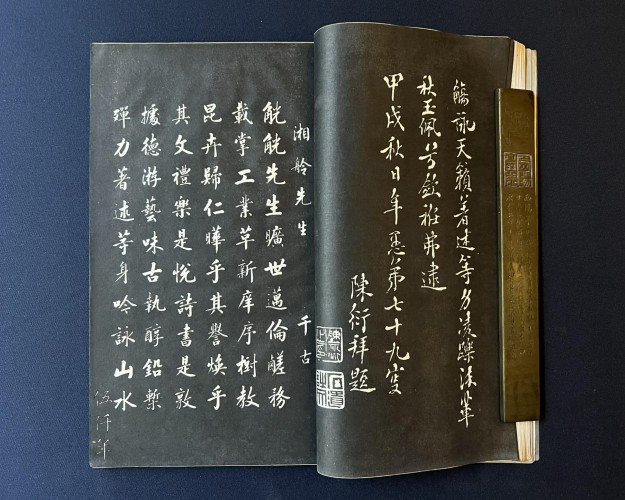 觴詠天籟著述等身凌躒輩
秋玉佩兮欽雅弗逮
甲戌秋日年愚弟七十九叟
陳衍拜題
湘舲先生 千古
觥觥先生曠世邁倫鹺務
載掌工業革新庠序樹教
昆卉歸仁曄乎其譽煥乎
其文禮樂是悅詩書是敦
據德游藝味古執醇鉛槧
殫力著述等身吟詠山水
伍仟年